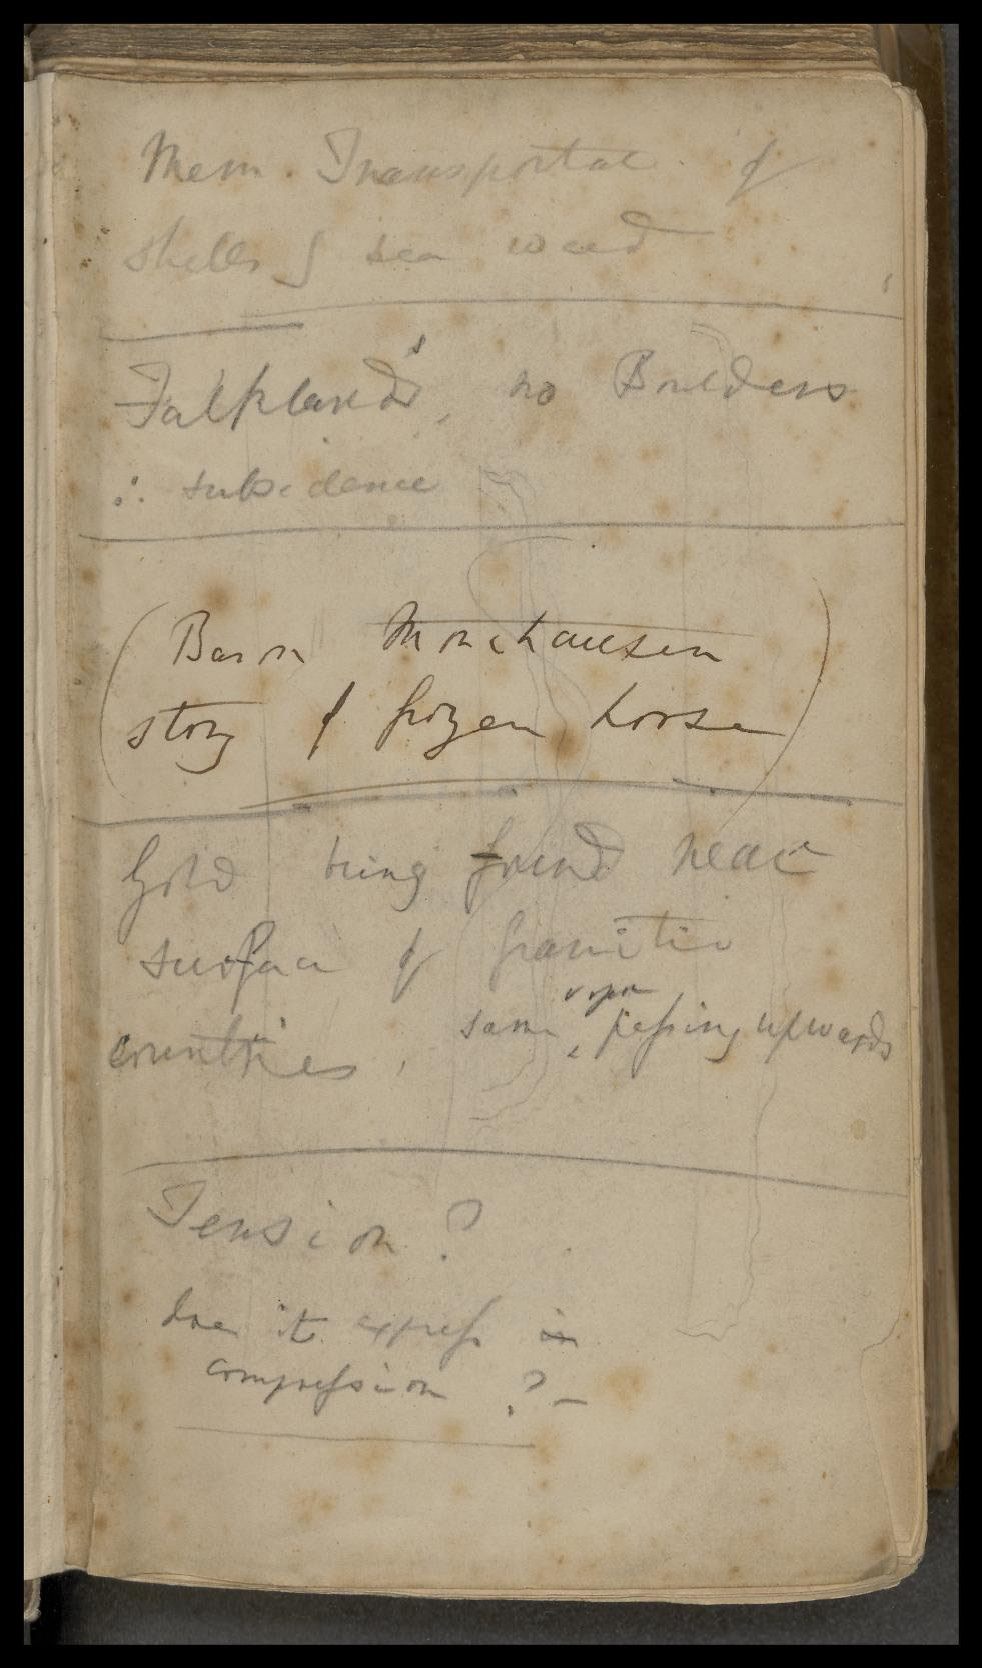 Mem. Transportal of
shells & sea weed
Falklands, no Boulders
∴ subsidence
(Baron Monchausen
story of frozen horse)
Gold being found near
surface of Granitic
countries, same passing upwards
Tension?
does it express in
compression ?—